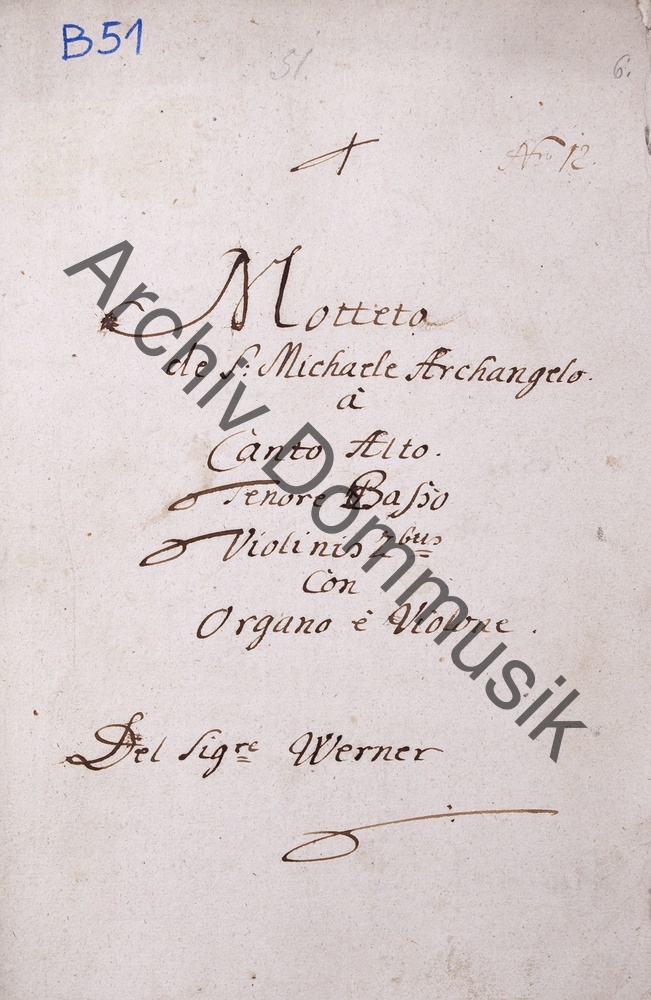 B51
51.
6.
Nro 12.
Motteto
de S: Michaele Archangelo.
à
Cànto Alto.
Tenore Basso
Violinis 2bus
Còn
Organo è Violone.
Del Sigre Werner
Archiv Dommusik